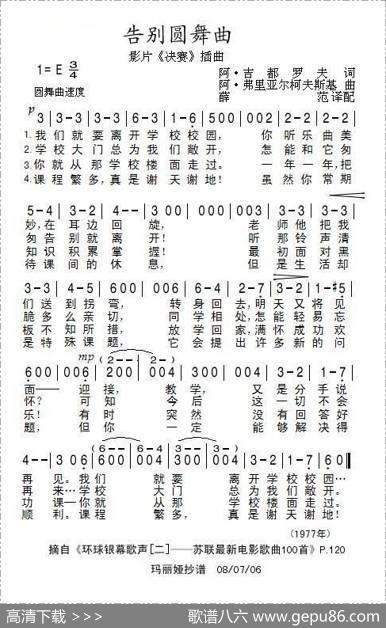 告别圆舞曲
影片《决赛》插曲
1=E 3/4
阿·吉都罗夫 词
阿·弗里亚尔柯夫斯基 曲
圆舞曲速度
薛 范 译配
p 3|3-3|6-3|3-3|6-3|3-1|6 00|500|002|2-2|2-2|
1.我们就要离开学校校园, 你听乐曲美
2.学校大门总为我们敞开, 怎能和它匆
3.你就从那学校楼面走过。 一年一年,把
4.课程繁多,真是谢天谢地! 虽然你常期
5-4|3-2|4--|3 00|000|003|3-3|3-3|
妙,在耳边回旋, 老师他把我
匆告别就离开! 听那铃声清
知识积累掌握! 最初面对黑
待课间的休息, 但是生活却
3-3|4-5|600|600|004|4-4|2-7|3-2|1-♯5|
们送到拐弯, 转身回去,明天又将见
脆多么亲切, 同学相处,怎能轻易忘
板不知所措, 放学回家,满怀成功欢
是特殊课题, 它会提出许多新的问
mp (2-- 2-)
600|006|200|004|300|003|3-2|1-7|
面——迎接, 教学, 又是分手说
怀?可知今后这一切不会
乐!有时突然没有回答好
题,但你一定能够解决得
(6-- 6-4 3-- 3-)
4--|306|600|004|300|003|3-2|1-7|60‖
再见。我们就要离开学校校园…
再来…学校大门总为我们敞开。
功课─你就从那学校楼面走过。
顺利。课程繁多,真是谢天谢地。
(1977年)
摘自《环球银幕歌声[二]——苏联最新电影歌曲100首》P.120
玛丽娅抄谱 08/07/06
高清下载 >>>
歌谱八六 www.gepu86.com